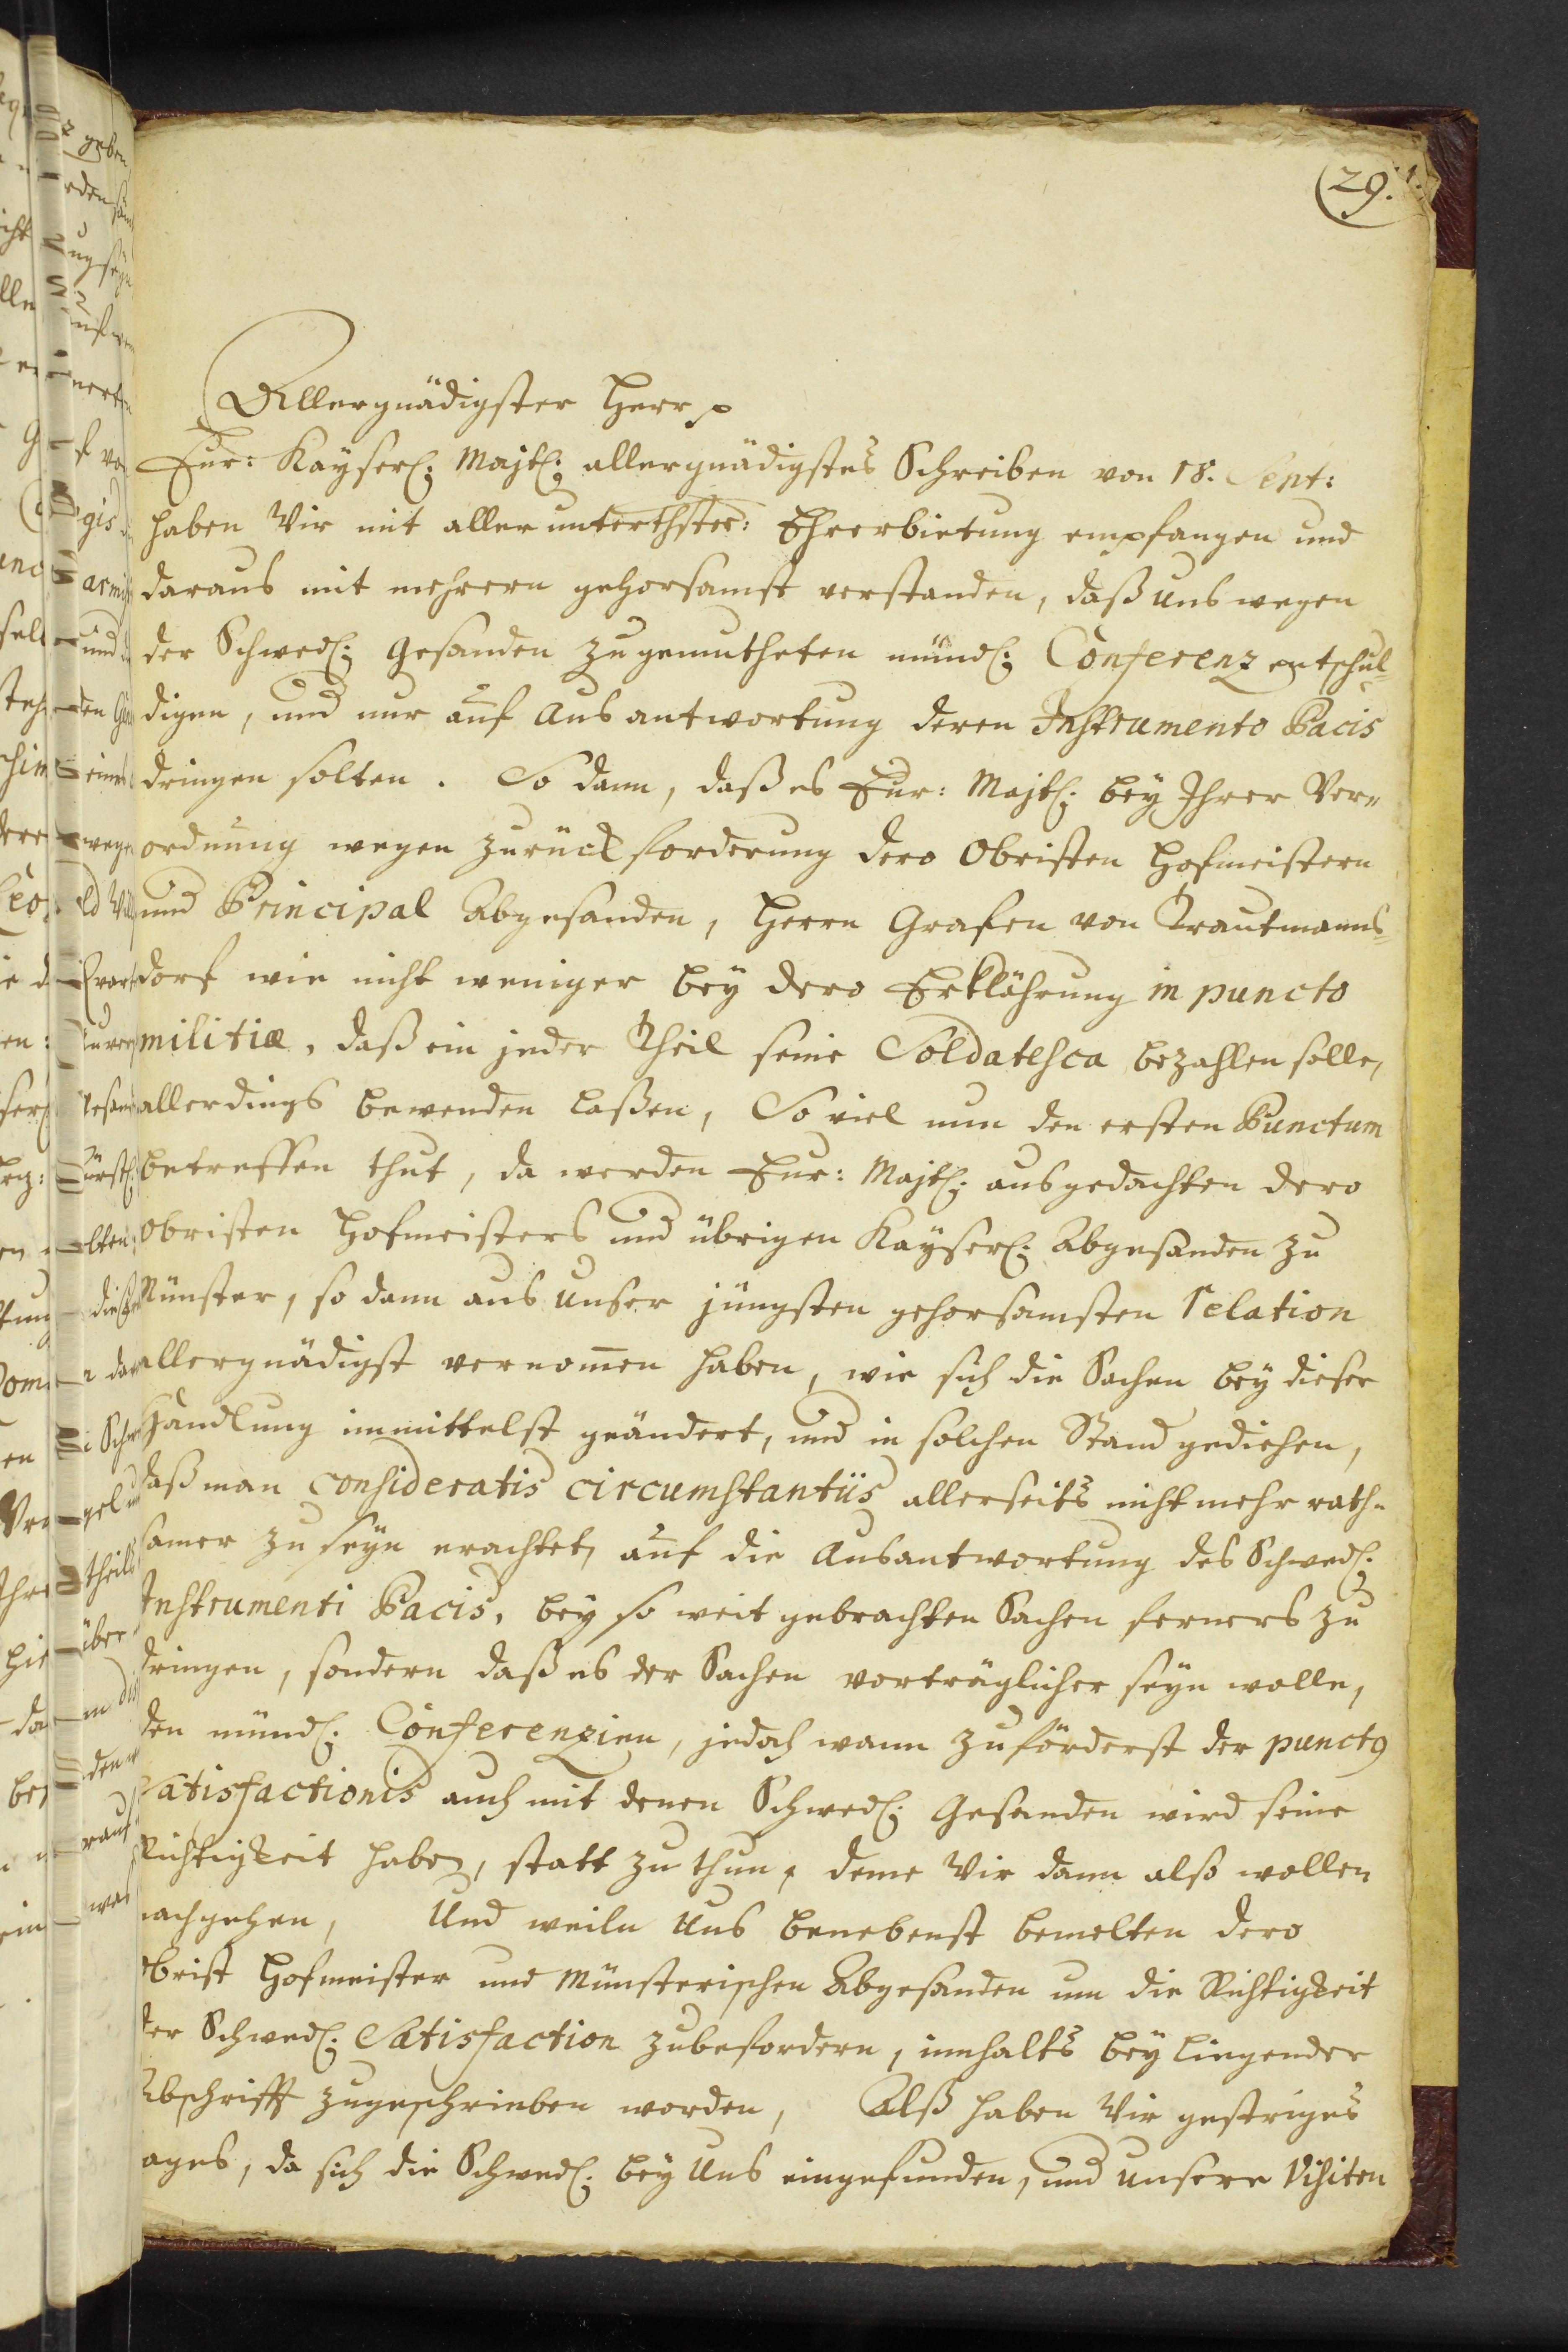 29.
Allergnädigster Herr
Eur: Kayserl: Majtl: allergnädigstes Schreiben von 18. Sept:
haben Wir mit aller unterthster: Ehrerbietung empfangen und
daraus mit mehrern gehorsamst verstanden, daß uns wegen
der Schwedl: Gesanden zugemutheten mündl: Conferenz entschul-
digen, und nur auf Ausantwortung deren Instrumento Pacis
dringen solten. So dann, daß es Eur: Majtl: bey Ihrer Ver-
ordnung wegen zurückforderung dero Obristen Hofmeistern
und Principal Abgesanden, Herrn Grafen von Trautmanns-
dorf wie nicht weniger bey dero Erklährung in puncto
militiæ, daß ein jeder Theil seine Soldatesca bezahlen solle,
allerdings bewenden laßen, So viel nun den ersten Punctum
betreffen thut, da werden Eur: Majtl: aus gedachten dero
Obristen Hofmeisters und übrigen Kayserl: Abgesanden zu
Münster, so dann aus unser jüngsten gehorsamsten relation
allergnädigst vernom̄en haben, wie sich die Sachen bey dieser
Handlung immittelst geändert, und in solchen Stand gediehen,
daß man consideratis circumstantiis allerseits nicht mehr rath-
samer zu seyn erachtet, auf die Ausantwortung des Schwedl:
Instrumenti Pacis, bey so weit gebrachten Sachen ferners zu
dringen, sondern daß es der Sachen vorträglicher seyn wolle,
den mündl: Conferenzien, jedoch wann zuförderst der punctus
satisfactionis auch mit denen Schwedl: Gesanden wird seine
Richtigkeit haben, statt zu thun, deme Wir dann also wollen
nachgehen, Und weiln Uns benebenst bemelten dero
Obrist Hofmeister und Münsterischen Abgesanden um die Richtigkeit
der Schwedl: Satisfaction zubefordern, innhalts bey liegender
Abschrifft zugeschrieben worden, Alß haben Wir gestriges
ages, da sich die Schwedl: bey Uns eingefunden, und unsere Visiten